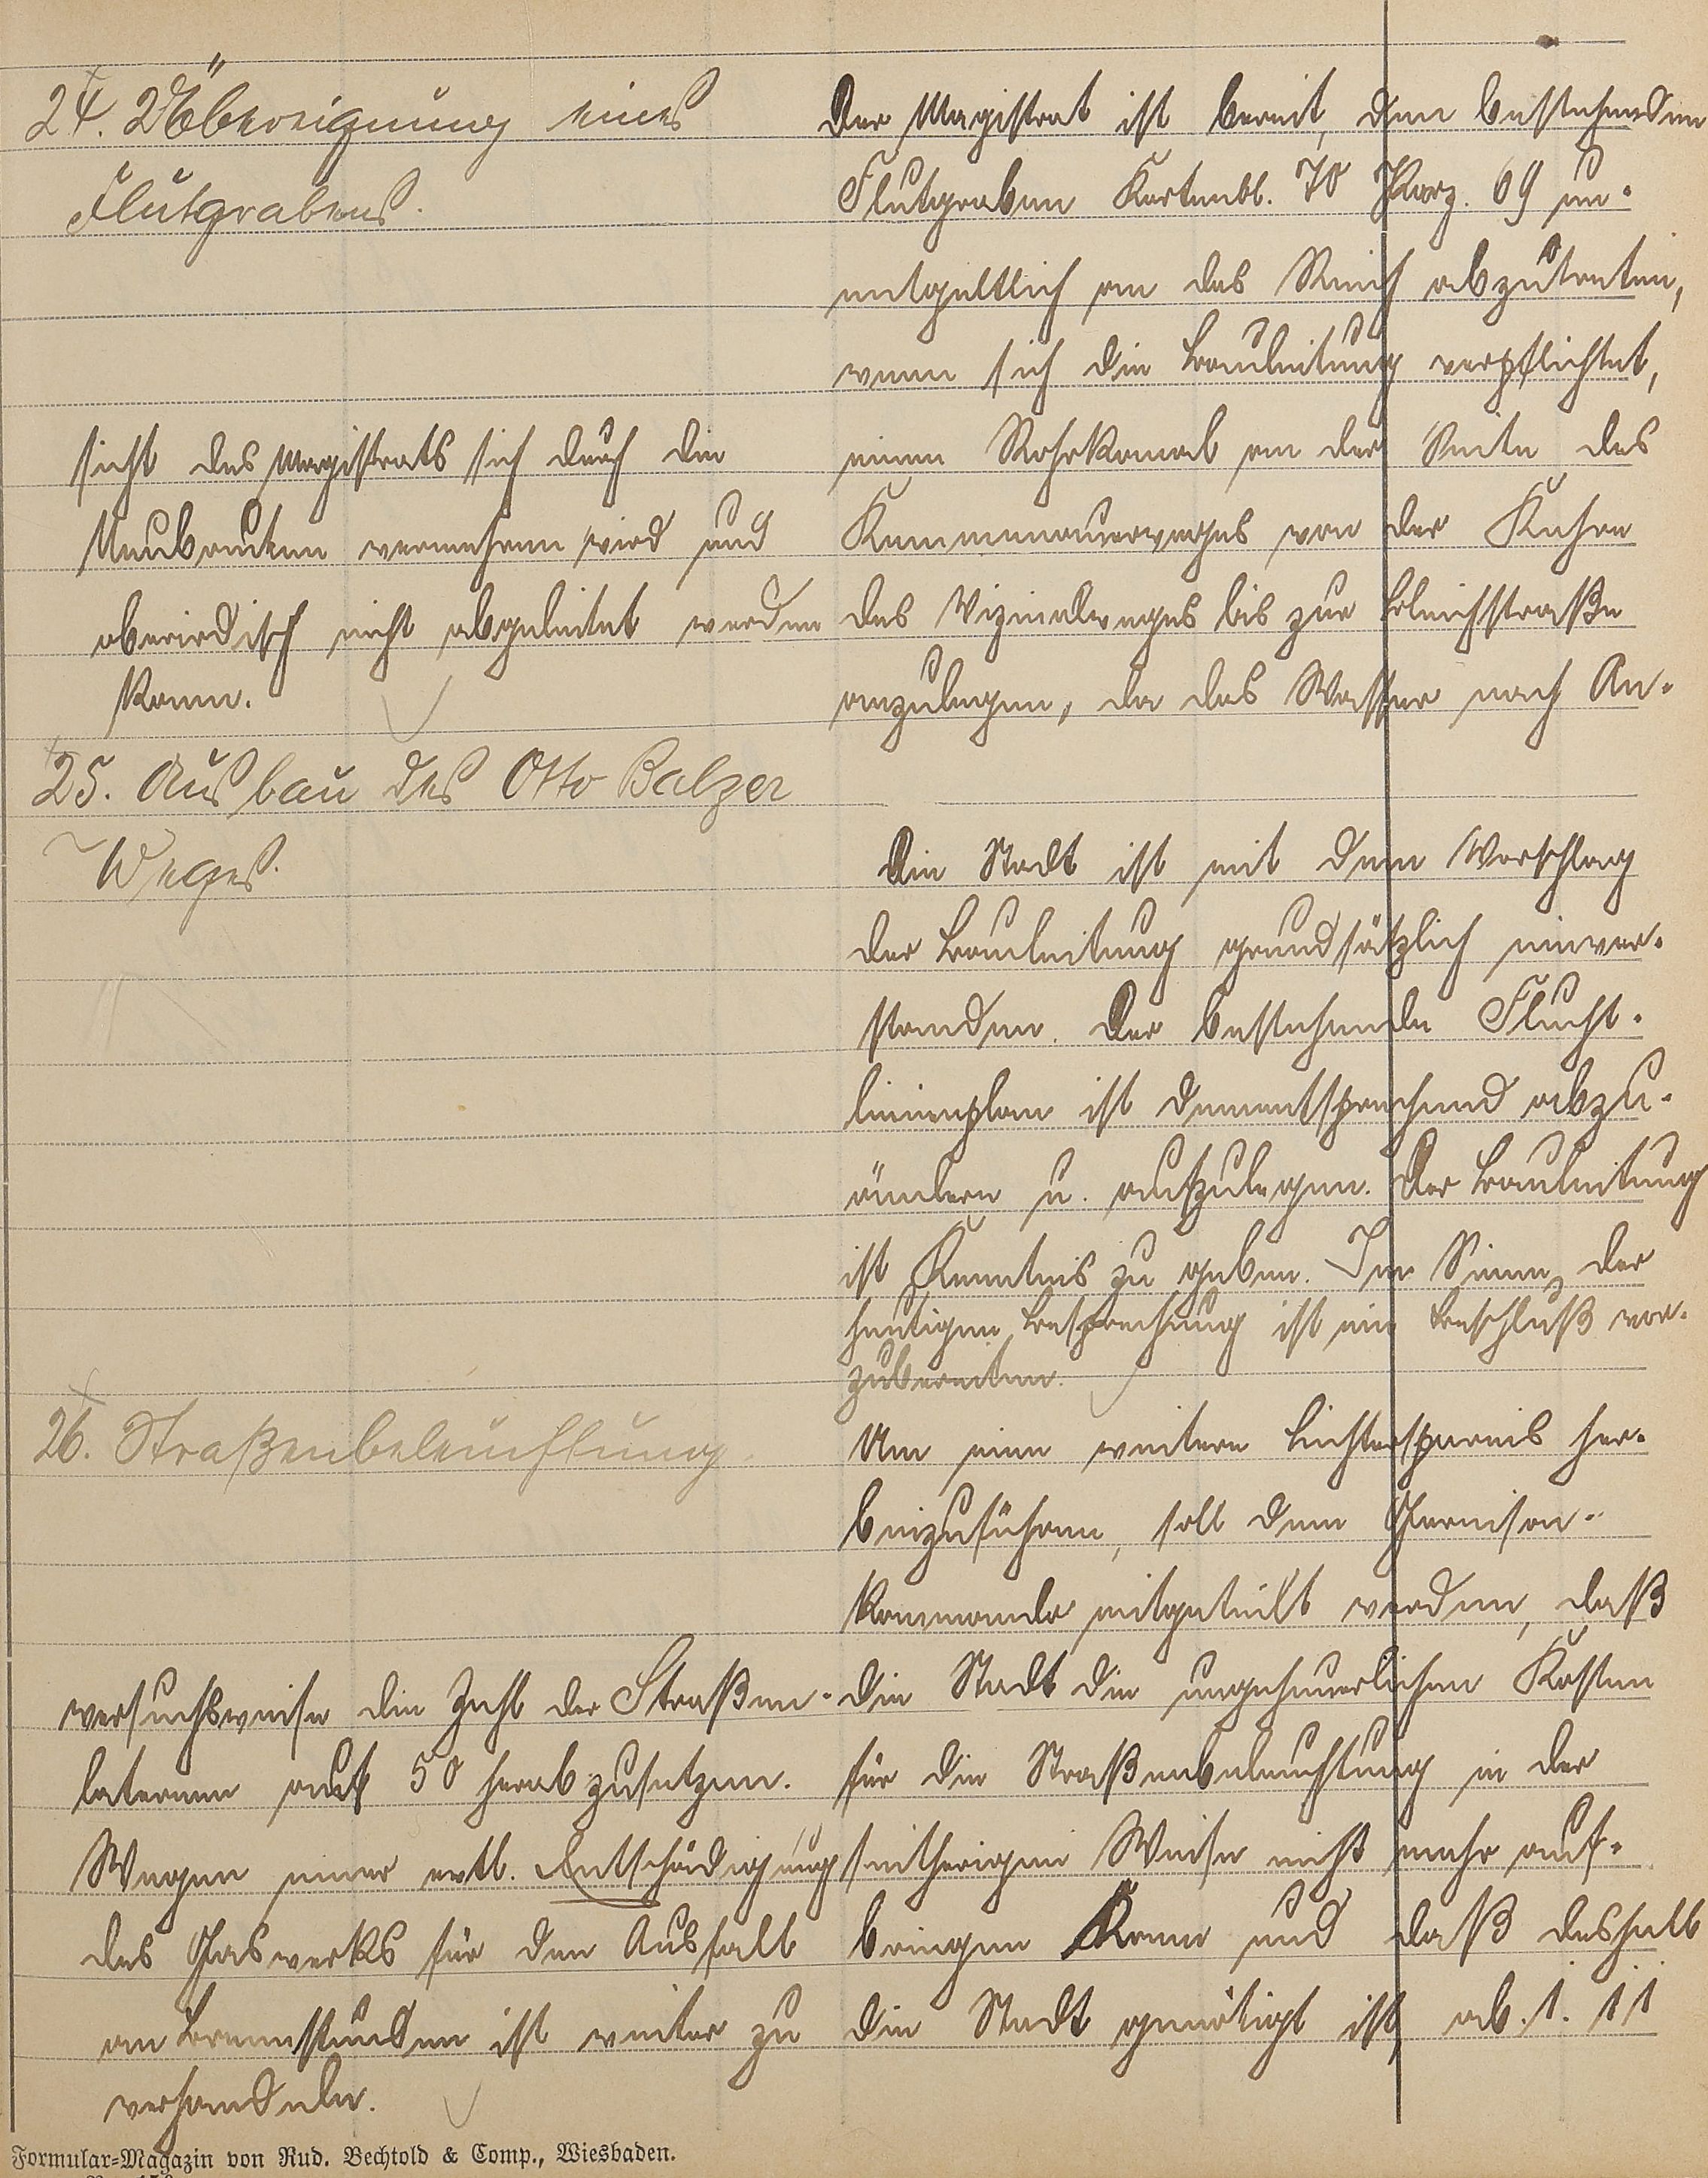 24. Übereignung eines
Flutgrabens.
Der Magistrat ist bereit, den bestehenden
Flutgraben Kartenbl. 70 Parz. 69 un-
entgeltlich an das Reich abzutreten,
wenn sich die Bauleitung verpflichtet,
einen Rohrkanal an der Seite des
Kummenauerweges von der Kehre
des Vizinalweges bis zur Bleichstraße
anzulegen, da das Wasser nach An-
sicht des Magistrats sich durch die
Neubauten vermehren wird und
oberirdisch nicht abgeleitet werden
kann.
25. Ausbau des Otto Balzer
Weges.
Die Stadt ist mit dem Vorschlag
der Bauleitung grundsätzlich einver-
standen. Der bestehende Flucht-
linienplan ist dementsprechend abzu-
ändern u. aufzulegen. Der Bauleitung
ist Kenntnis zu geben. Im Sinne der
heutigen Besprechung ist ein Beschluß vor-
zubereiten.
26. Straßenbeleuchtung
Um eine weitere Lichtersparnis her-
beizuführen, soll dem Garnison-
kommando mitgeteilt werden, daß
die Stadt die ungeheuerlichen Kosten
für die Straßenbeleuchtung in der
seitherigen Weise nicht mehr auf-
bringen kann und daß deshalb
die Stadt genötigt ist, ab 1. 11
versuchsweise die Zahl der Straßen-
laternen auf 50 herabzusetzen.
Wegen einer evtl. Entschädigung
des Gaswerks für den Ausfall
an Brennstunden ist weiter zu
verhandeln.
Formular-Magazin von Rud. Bechtold & Comp., Wiesbaden.